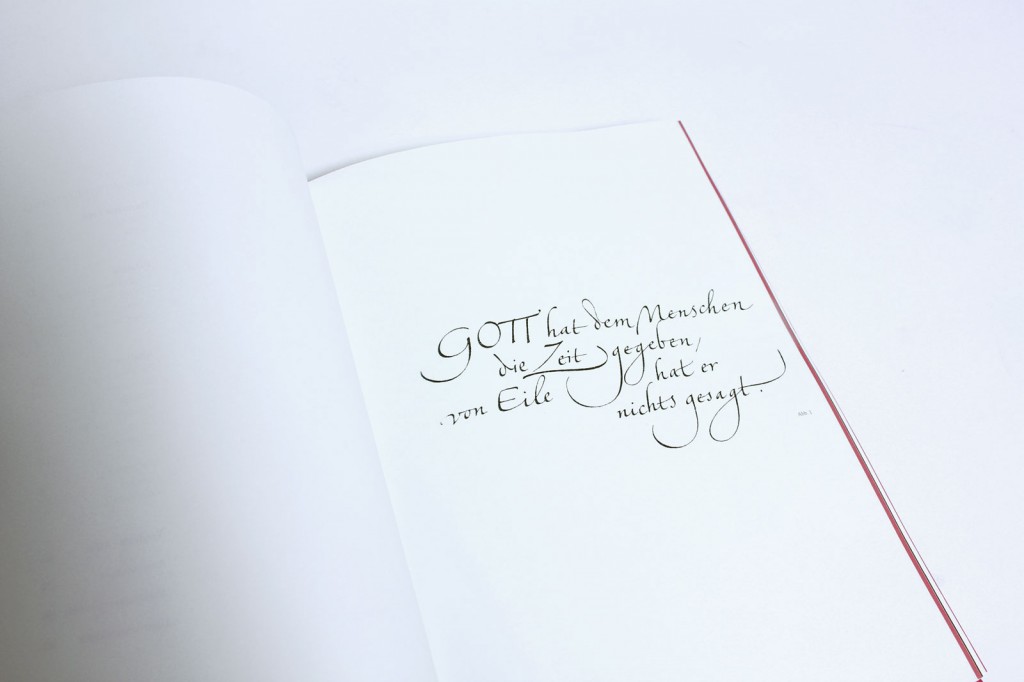 GOTT hat dem Menschen
die Zeit gegeben,
von Eile hat er
nichts gesagt.